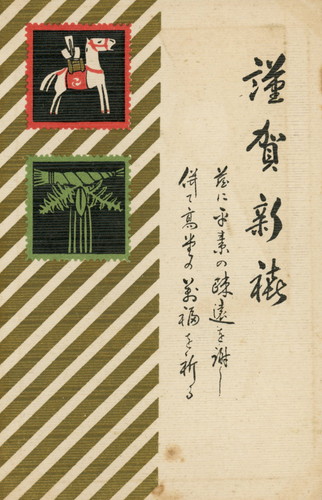 謹賀新禧
茲に平素の疎遠を謝し
併て高堂の萬福を祈る